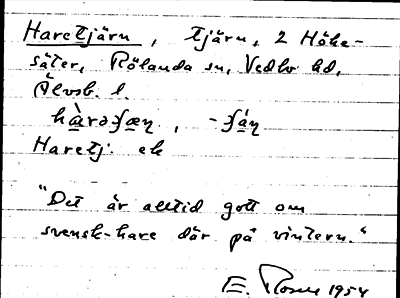 Haretjärn, tjärn, 2 Höke-
säter, Rölanda sn, Vedbo hd,
Älvsb. l.
hàrəʃæṇ, -ʃä́ṇ
Haretj. ek
"Det är alltid gott om
svensk-hare där på vintern."
E. Rosen 1954